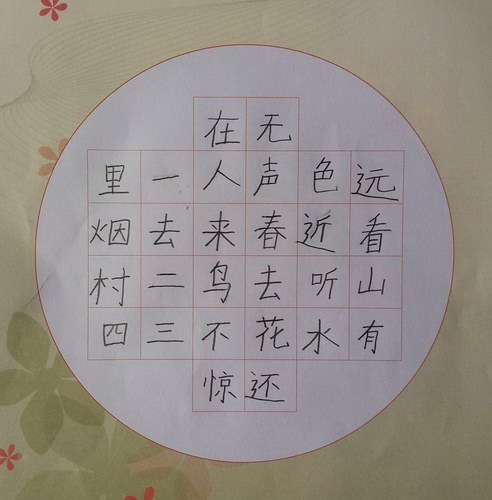 远看山有
色近听水
无声春去花还
在人来鸟不惊
一去二三
里烟村四